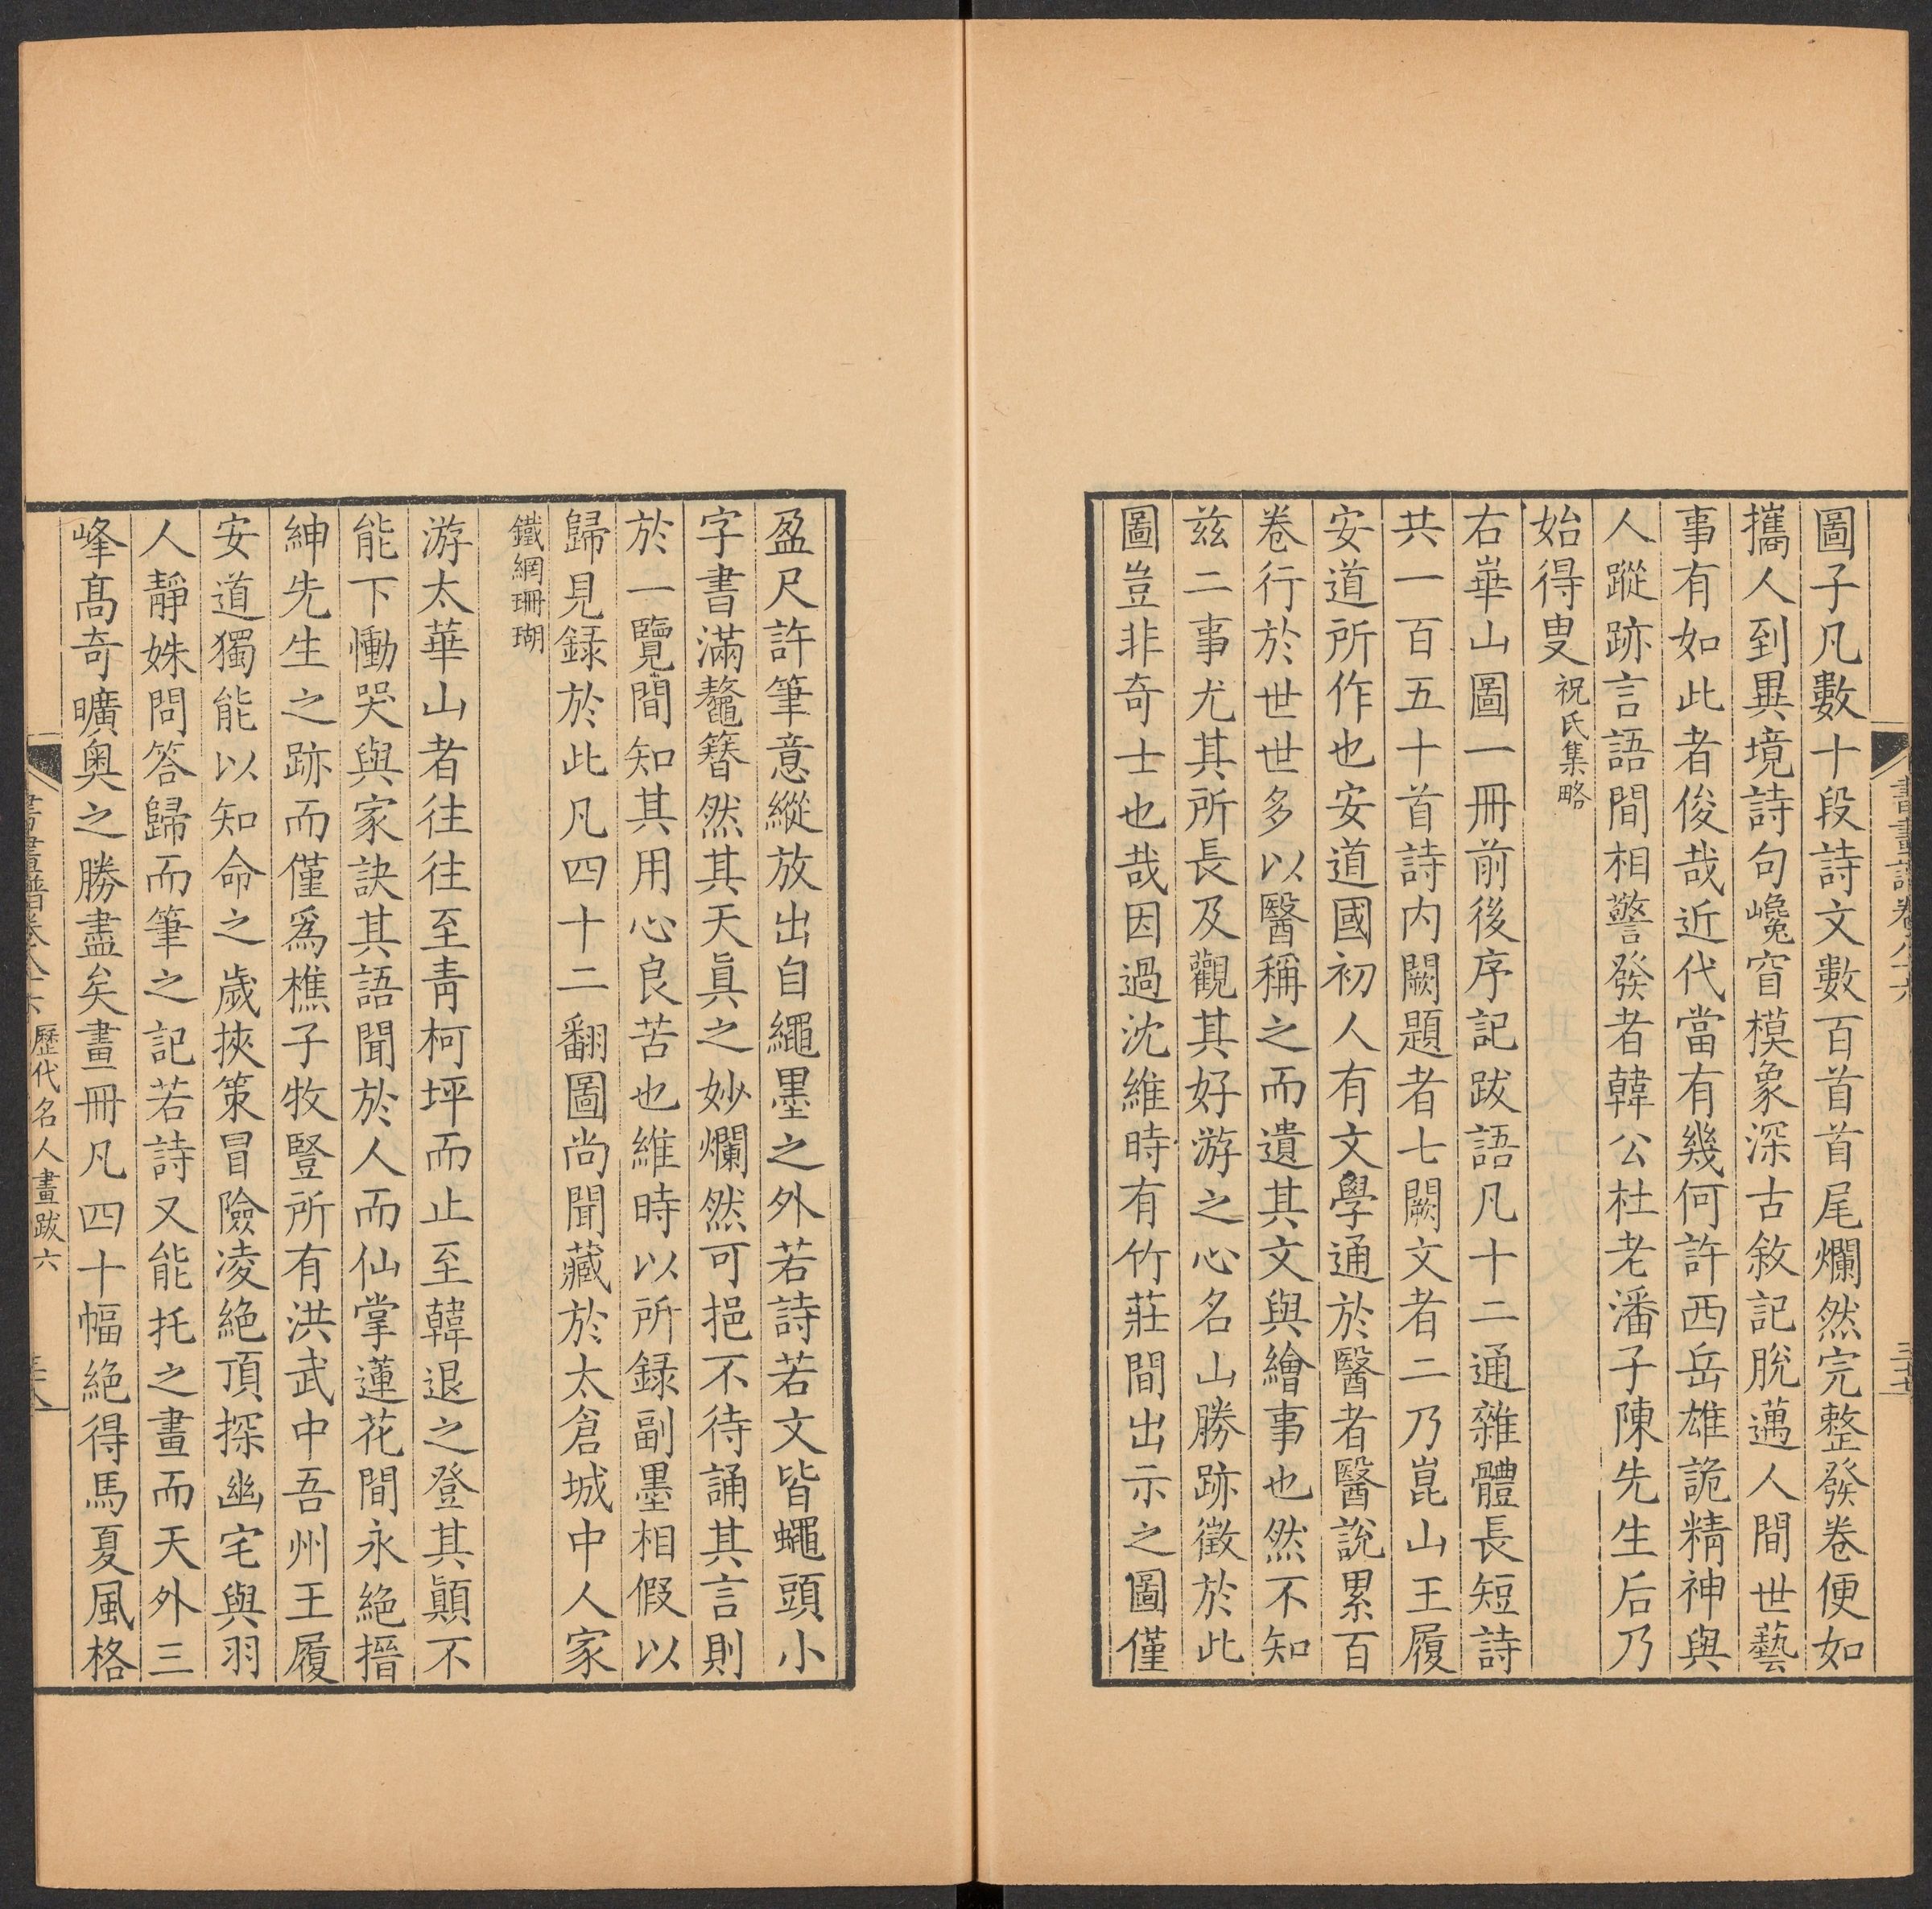 書畫譜卷八十六
三十七
圖子凡數十段詩文數百首首尾爛然完整發卷便如
攜人到異境詩句巉窅模象深古敘記脫邁人間世藝
事有如此者俊哉近代當有幾何許西岳雄詭精神與
人蹤跡言語間相警發者韓公杜老潘子陳先生后乃
始得叟祝氏集略
右崋山圖一冊前後序記跋語凡十二通雜體長短詩
共一百五十首詩内闕題者七闕文者二乃崑山王履
安道所作也安道國初人有文學通於醫者醫說累百
卷行於世世多以醫稱之而遺其文與繪事也然不知
兹二事尤其所長及觀其好游之心名山勝跡徵於此
圖豈非奇士也哉因過沈維時有竹莊間出示之圖僅
盈尺許筆意縱放出自繩墨之外若詩若文皆蠅頭小
字書滿鼇簪然其天眞之妙爛然可挹不待誦其言則
於一覽間知其用心良苦也維時以所録副墨相假以
歸見録於此凡四十二翻圖尚聞藏於太倉城中人家
鐵網珊瑚
游太華山者往往至靑柯坪而止至韓退之登其顚不
能下慟哭與家訣其語聞於人而仙掌蓮花間永絶搢
紳先生之跡而僅爲樵子牧豎所有洪武中吾州王履
安道獨能以知命之歲挾策冒險凌絶頂探幽宅與羽
人靜姝問答歸而筆之記若詩又能托之畫而天外三
峰髙奇曠奥之勝盡矣畫冊凡四十幅絶得馬夏風格
書畫譜卷八十六 歷代名人畫跋六
三十八